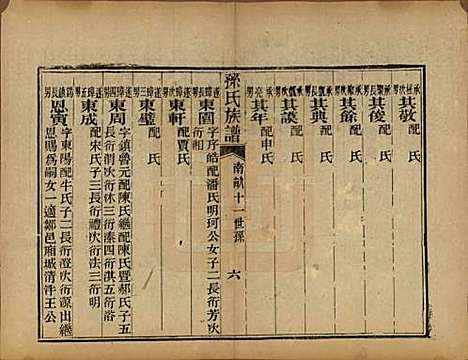 承檀次男 其敬 配 氏
承 長男 其俊 配 氏
承 次男 其餘 配 氏
承甑長男 其典 配 氏
承甑次男 其謨 配 氏
承亮男 其年 配申氏
孫氏族譜 南畝十一世孫 六
蓬璋長男 東園 字序皓配潘氏明珂公女子二長衍芳次衍相
蓬璋次男 東軒 配賈氏
蓬璋三男 東璧 配 氏
蓬璋四男 東周 字鎮魯元配陳氏繼配陳氏暨郝氏子五長衍渭次衍休三衍湊四衍淇五衍浴
蓬璋五男 東成 配宋氏子三長衍衡次衍法三衍明
錫鎮長男 恩寅 字東陽配牛氏子二長衍澄次衍源出繼恩賜爲嗣女一適鄒邑廂城清泮王公